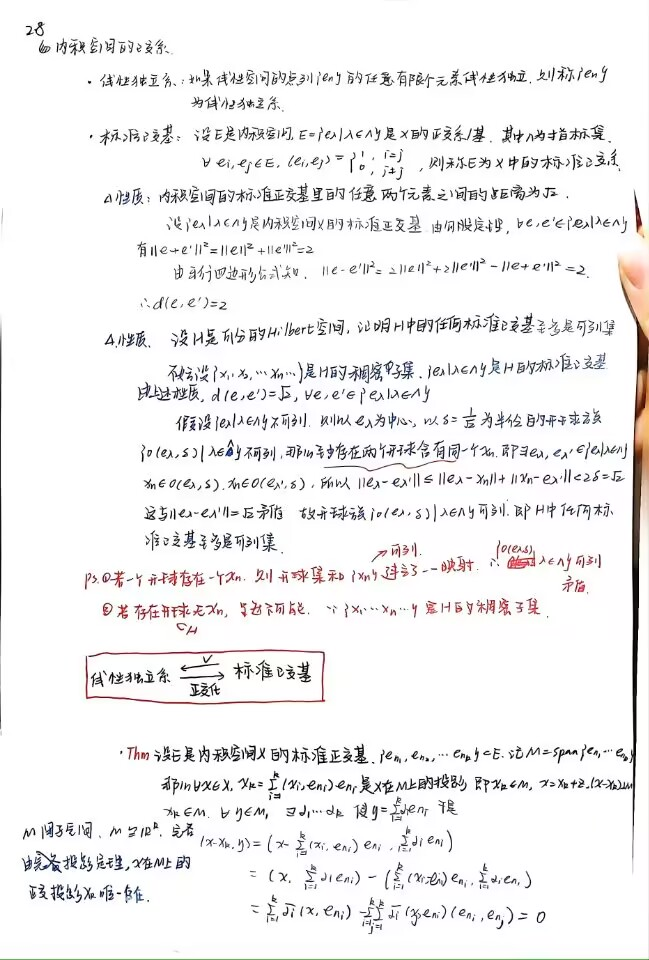 28
⑥ 内积空间的正交系.
· 线性独立系: 如果线性空间的点列{en}的任意有限个元素线性独立. 则称{en}
为线性独立系.
· 标准正交基: 设E是内积空间, E={eλ|λ∈Λ}是X的正交系/基. 其中Λ为指标集.
∀ei,ej∈E, (ei,ej)={1, i=j
0, i≠j, 则称E为X中的标准正交系.
△性质: 内积空间的标准正交基里的任意两个元素之间的距离为√2.
设{eλ|λ∈Λ}是内积空间X的标准正交基. 由勾股定理, ∀e,e'∈{eλ|λ∈Λ}
有||e+e'||²=||e||²+||e'||²=2
由平行四边形公式知, ||e-e'||²=2||e||²+2||e'||²-||e+e'||²=2.
∴d(e,e')=2
△.性质. 设H是可分的Hilbert空间, 证明H中的任何标准正交基至多是可列集
不妨设{x1,x2,…xn…}是H的稠密子集. {eλ|λ∈Λ}是H的标准正交基
由上述性质, d(e,e')=√2, ∀e,e'∈{eλ|λ∈Λ}
假设{eλ|λ∈Λ}不可列. 则以eλ为中心, 以δ=1/√2为半径的开球族
{O(eλ,δ)|λ∈Λ}不可列, 那么至少存在两个开球含有同一个xn. 即∃eλ,eλ'∈{eλ|λ∈Λ}
xn∈O(eλ,δ), xn∈O(eλ',δ), 所以||eλ-eλ'||≤||eλ-xn||+||xn-eλ'||<2δ=√2
这与||eλ-eλ'||=√2矛盾 故开球族{O(eλ,δ)|λ∈Λ}可列. 即H中任何标
准正交基至多是可列集.
→可列.
Ps.①若一个开球存在一个xn. 则开球集和{xn}建立了一一映射. ∴{O(eλ,δ)|λ∈Λ}可列
矛盾.
②若存在开球无xn, 这不可能. ∵{x1…xn…}是H的稠密子集.
⊂H
线性独立系 ⇄ 标准正交基
√
正交化
· Thm 设E是内积空间X的标准正交基. {en1,en2,…enk}⊂E. 记M=span{en1…enk}
那么∀x∈X, xk=∑(i=1→k)(x,eni)eni是x在M上的投影, 即xk∈M, x=xk+z,(x-xk)⊥M
xk∈M. ∀y∈M, ∃α1…αk 使y=∑(i=1→k)αieni 于是
M闭子空间, M≅ℝᵏ, 完备
由完备投影定理, x在M上的
正交投影xk唯一存在.
(x-xk,y)=(x-∑(i=1→k)(x,eni)eni,∑(i=1→k)αieni)
=(x,∑(i=1→k)αieni)-(∑(i=1→k)(x,eni)eni,∑(i=1→k)αieni)
=∑(i=1→k)ᾱi(x,eni)-∑(i=1→k)∑(j=1→k)ᾱi(x,eni)(eni,enj)=0